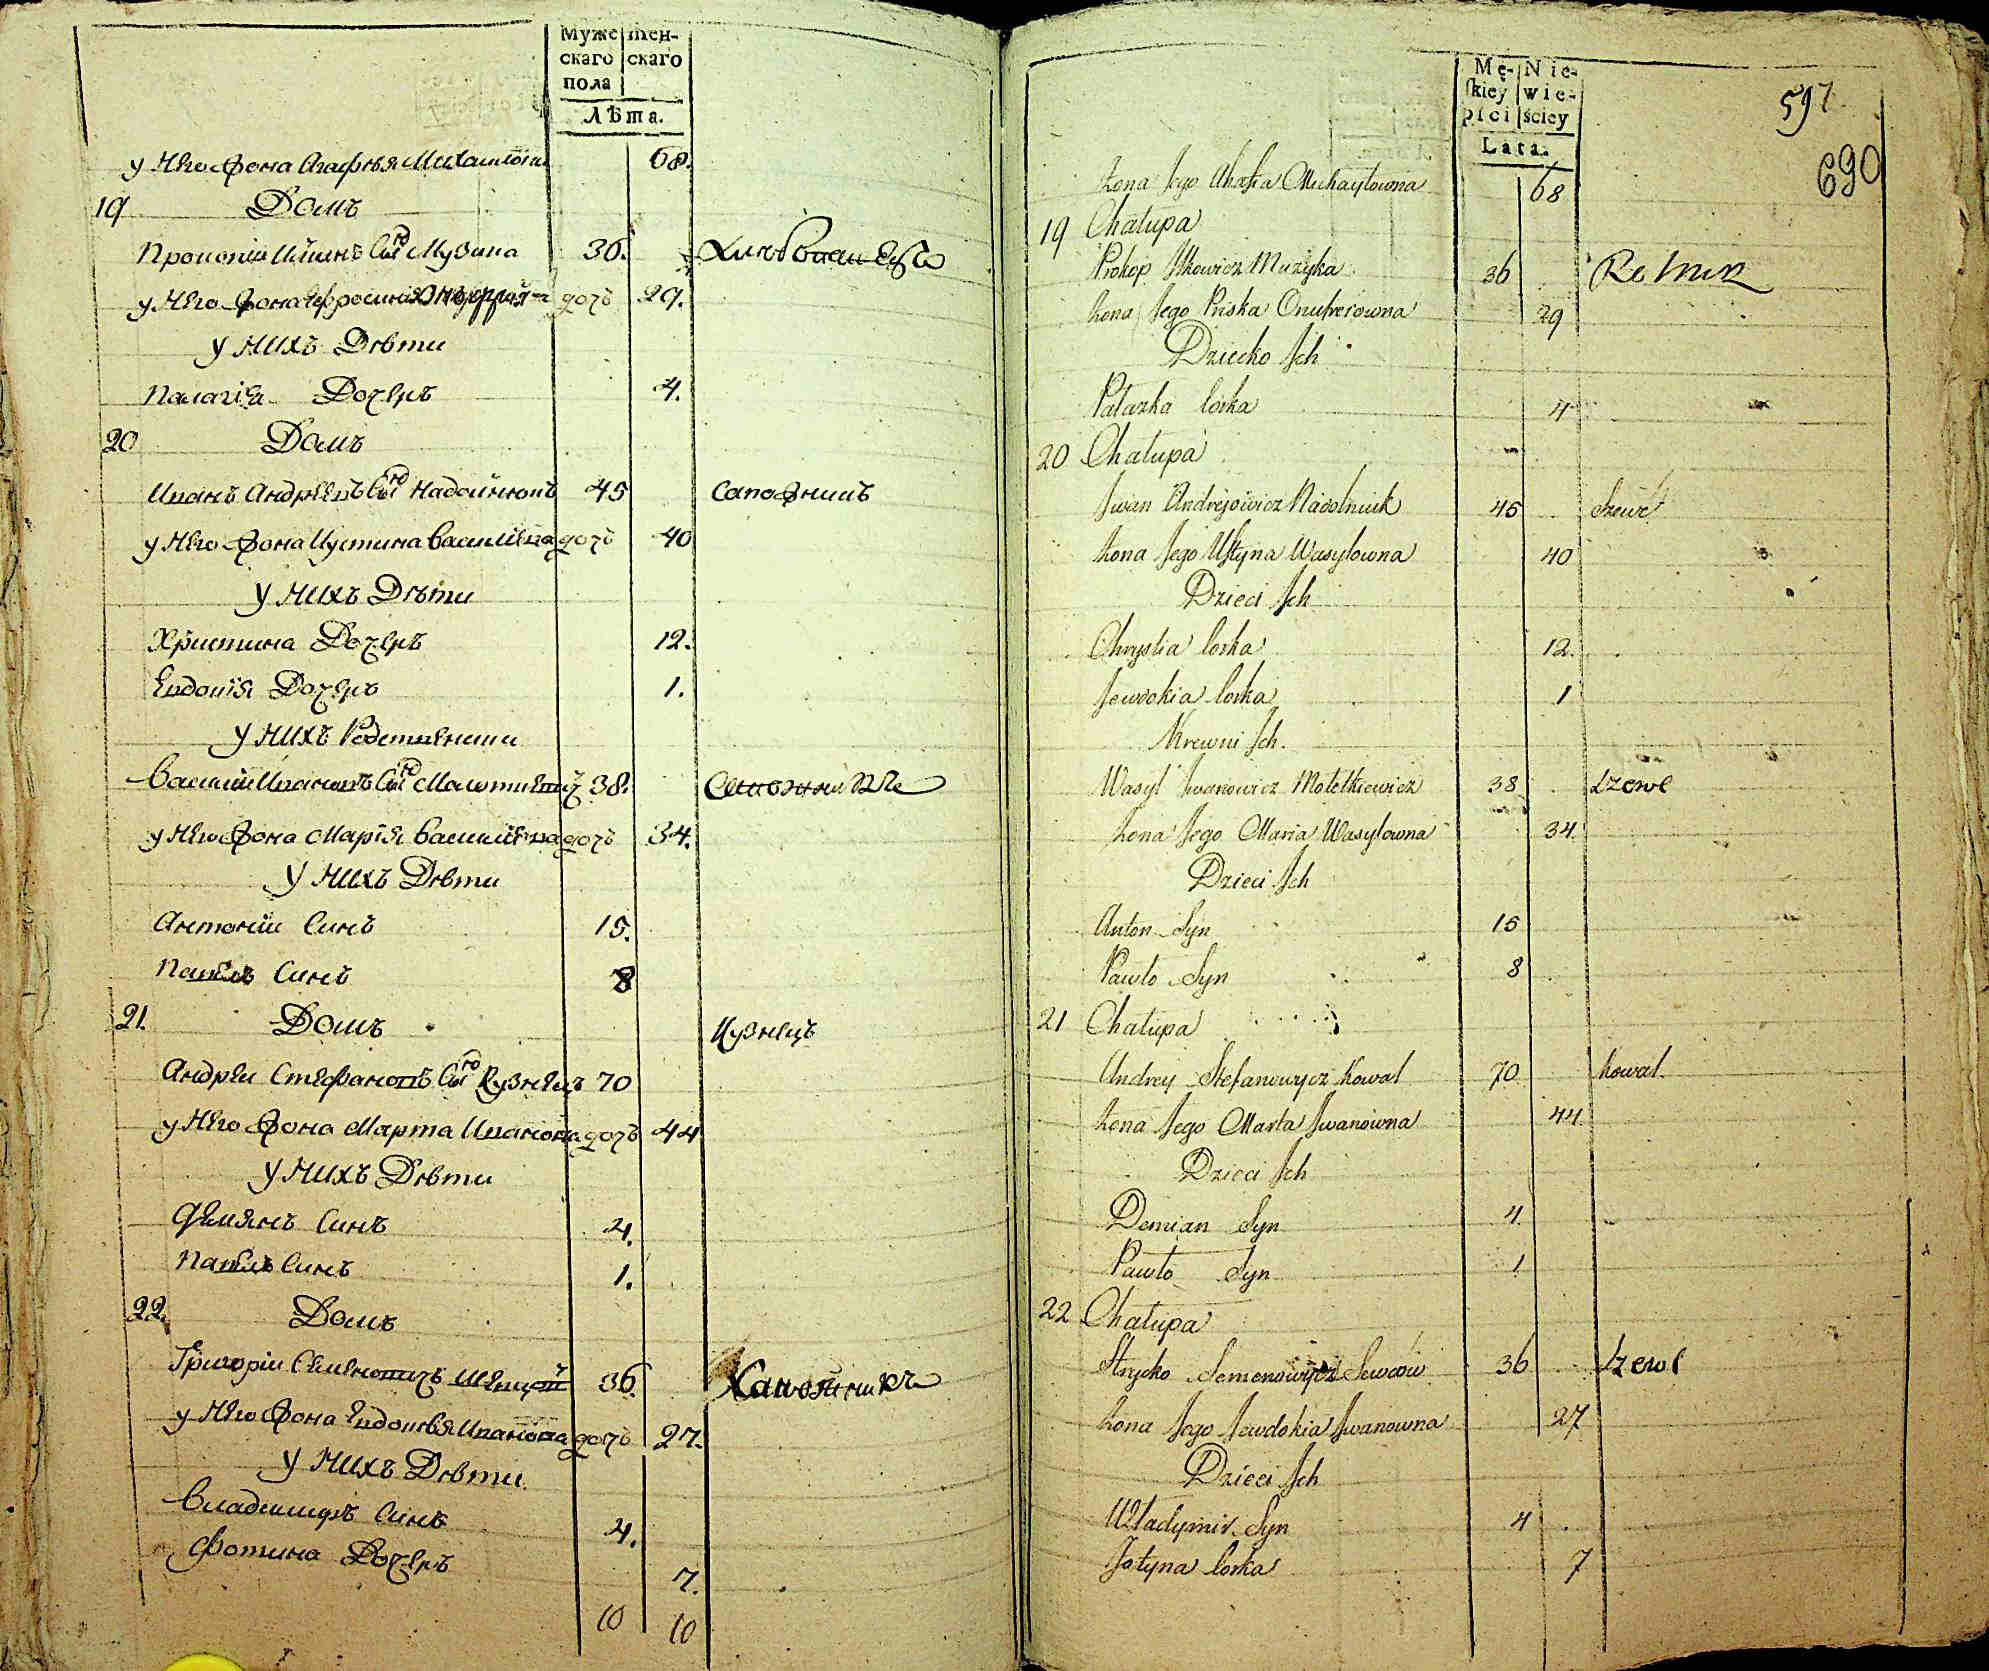 Муже женскаго скаго
пола
Лѣта.
у Него жена Агафья Михайлова 68.
19 Домъ
Прокопій Ильинъ Сынъ Музика 36. Хлѣбопашество
у Него жена Ефросинія Онуфрія дочь 29.
у Нихъ Дѣти
Палагіа Дочерь 4.
20 Домъ
Иванъ Андреевъ Сынъ Надольнюкъ 45 сапожникъ
у Него жена Иустина Василіева дочь 40
у Нихъ Дѣти
Христина Дочерь 12.
Евдокія Дочерь 1.
у Нихъ Родственики
Василій Ивановъ Сынъ 38. Сапожникъ
у Него жена Марія Василіева дочь 34.
у Нихъ Дѣти
Антоній Синъ 15.
Павелъ Синъ 8
21. Домъ Кузнецъ
Андрей Стефановъ Сынъ Кузнецъ 70
у Него жена Марта Иванова дочь 44
у Нихъ Дѣти
Демянъ Синъ 4.
Павелъ Синъ 1.
22. Домъ
Григорій Семеновичъ 36.
у Него жена Евдокія Иванова дочь 27.
у Нихъ Дѣти
Владимиръ Синъ 4.
Фотина Дочерь 7.
10 10
Mę- Nie-
ſkiey wie-
płci ściey
Lata.
597
690
żona Jego Ahafia Michayłowna 68
19 Chałupa
Prokop Ilkowicz Muzyka 36 Rolnik
żona Jego Priska Onufreiowna 29
Dziecko Jch
Pałazka Corka 4
20 Chałupa
Jwan Andrejowicz Nadolniuk 45 Szewc
żona Jego Uſtyna Wasylowna 40
Dzieci Jch
Chrystia Corka 12.
Jewdokia Corka 1
Krewni Jch.
Wasyl Jwanowicz Mołotkiewicz 38 Szewc
żona Jego Maria Wasylowna 34
Dzieci Jch
Anton Syn 15
Pawło Syn 8
21 Chałupa
Andrey Stefanowycz Kowal 70 Kowal
żona Jego Marta Jwanowna 44
Dzieci Jch
Demian Syn 4
Pawło Syn 1
22 Chałupa
Hrycko Semenowycz Sewców 36 Szewc
żona Jego Jewdokia Jwanowna 27
Dzieci Jch
Władymir Syn 4
Fotyna Corka 7